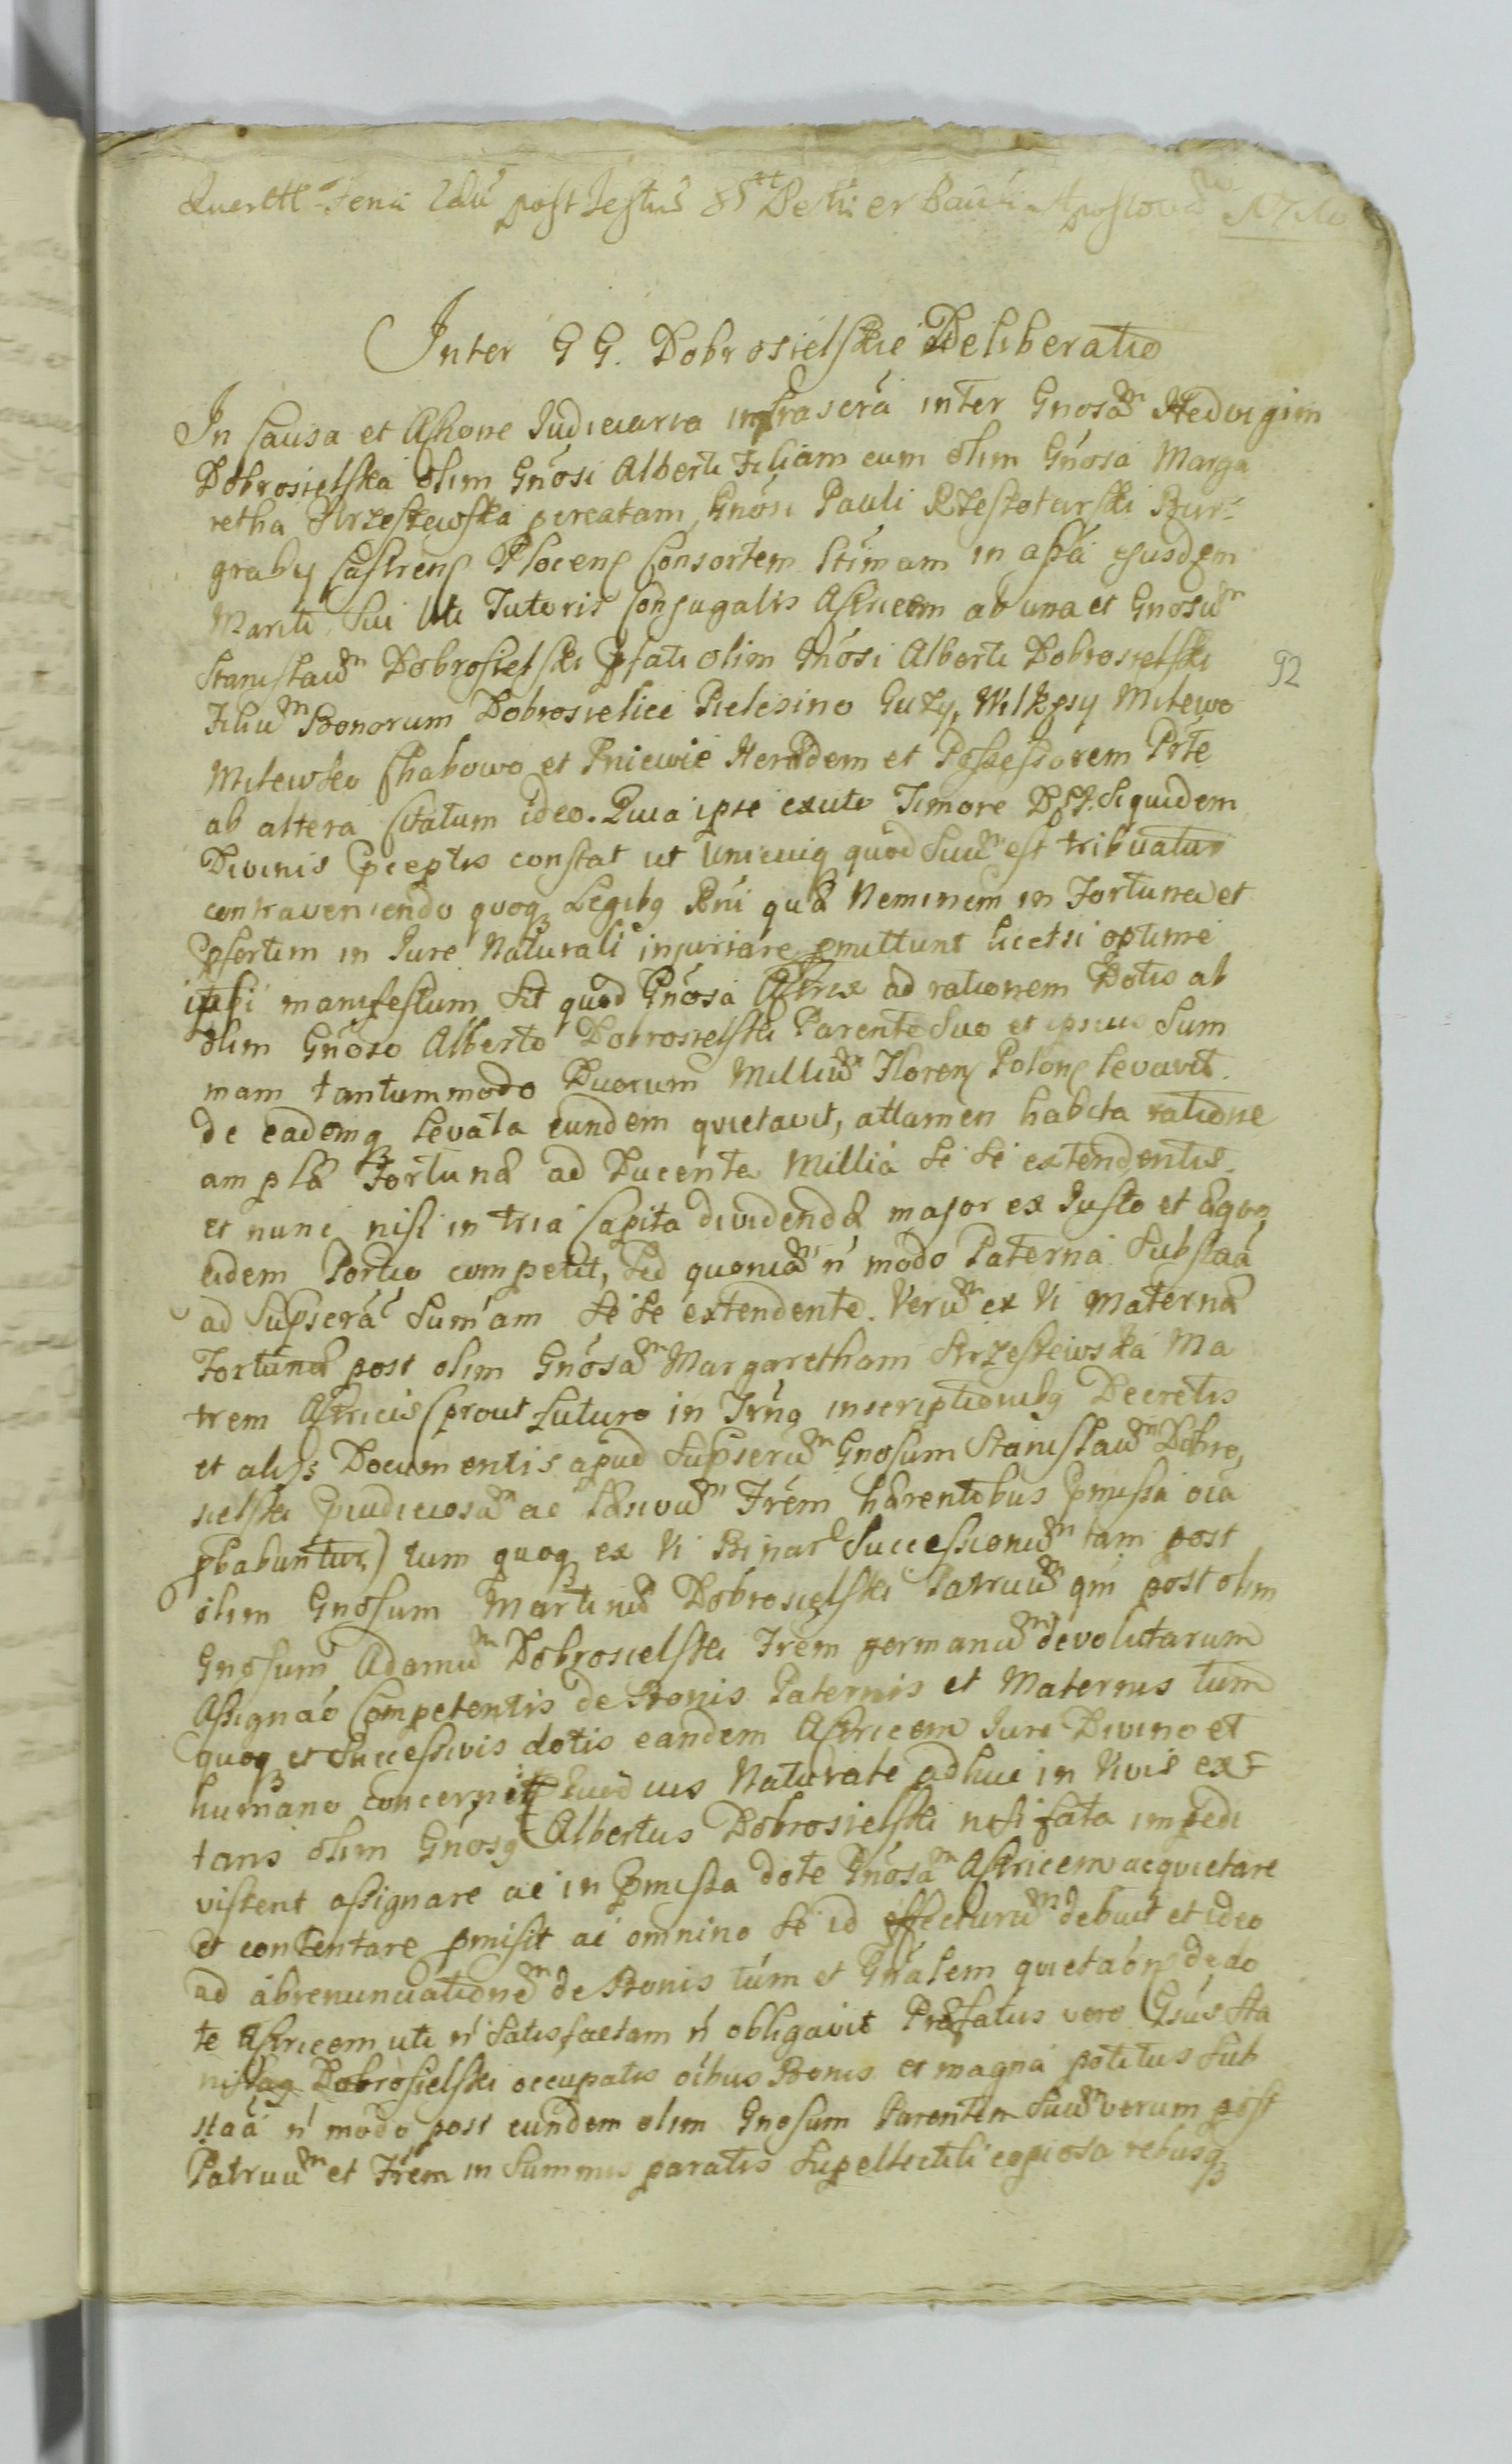 Feria 2da post Festu SS Petri et Pauli Apostolo
Inter G G. Dobrosielskie Deliberatio
In Causa et Actione Judiciaria infrascrá inter Gnosam Hedvigim
Dobrosielska olim Gnósi Alberti Filiam cum olim Gnósa Marga
retha Strzeszewska pcreatam, Gnósi Pauli Rzeszotarski Bur-
grabij Castrens Plocens Consortem ltimam in assá ejusdem
Mariti Sui uti Tutoris Conjugalis Actricem ab una et Gnosum
Stanislaum Dobrosielski pfati olim Gnósi Alberti Dobrosielski
Filium Bonorum Dobrosielice Pielesino Guzy, Wilkęsy Milewo
92
Milewko Chabowo et Pniewie Heredem et Possessorem Prte
ab altera Citatum ideo. Quia ipse exuto Timore Siquidem
Divinis pceptis constat ut Unicuiq quod Suum est tribuatur
contraveniendo quoq Legibg Rni quæ Neminem in Fortuna et
psertim in Jure Naturali injuriare pmittunt licetsi optime
manifestum sit quod Gnósa Actrix ad rationem Dotis ab
olim Gnóso Alberto Dobrosielski Parente Suo et ipsius Sum
mam tantummodo Duorum Millium Floren Polon levavit
de eademq levata eundem quietavit, attamen habita ratione
amplæ Fortunæ ad Ducenta Millia se se extendentis
et nunc nisi in tria Capita dividendæ major ex Justo et Æquo
eidem Portio competit, Sed quoniam ń modo Paterna Substaá
ad Supscrá Sumam se se extendente. Verum ex Vi Maternæ
Fortunæ post olim Gnósam Margaretham Strzeszewska Ma
trem Actricis (prout futuro in Trno inscriptionibg Decretis
et alijs Documentis apud Supscrum Gnosum Stanislaum Dobro,
sielski pjudiciosam ac Læsivum Frém hærentibus pmissa oia
pbabuntur) tum quoq ex Vi Binar Successionum tam post
olim Gnosum Martinum Dobrosielski Patruum qm post olim
Gnosum Adamum Dobrosielski Frem germanum devolutarum
Assignaó Competentis de Bonis Paternis et Maternis tum
quoq et Successivis dotis eandem Actricem Jure Divino et
humano concernit Naturale adhuc in Vivis exi-
tans olim Gnósg Albertus Dobrosielski nisi fata impedi
vissent assignare ac in pmissa dote Gnósam Actricem acquietare
et contentare pmisit ac omnino se id effecturum debuit et ideo
ad abrenunciationem de Bonis tum et Gnálem quietaón de do
te Actricem uti ń satisfactam ń obligavit Præfatus vero Gsús Sta
nislag Dobrosielski occupatis oibus Bonis et magna potitus Sub
staá ń modo post eundem olim Gnosum Parentem Suum verum post
Patruum et Frem in Summis paratis Supellectili copiosa rebusq